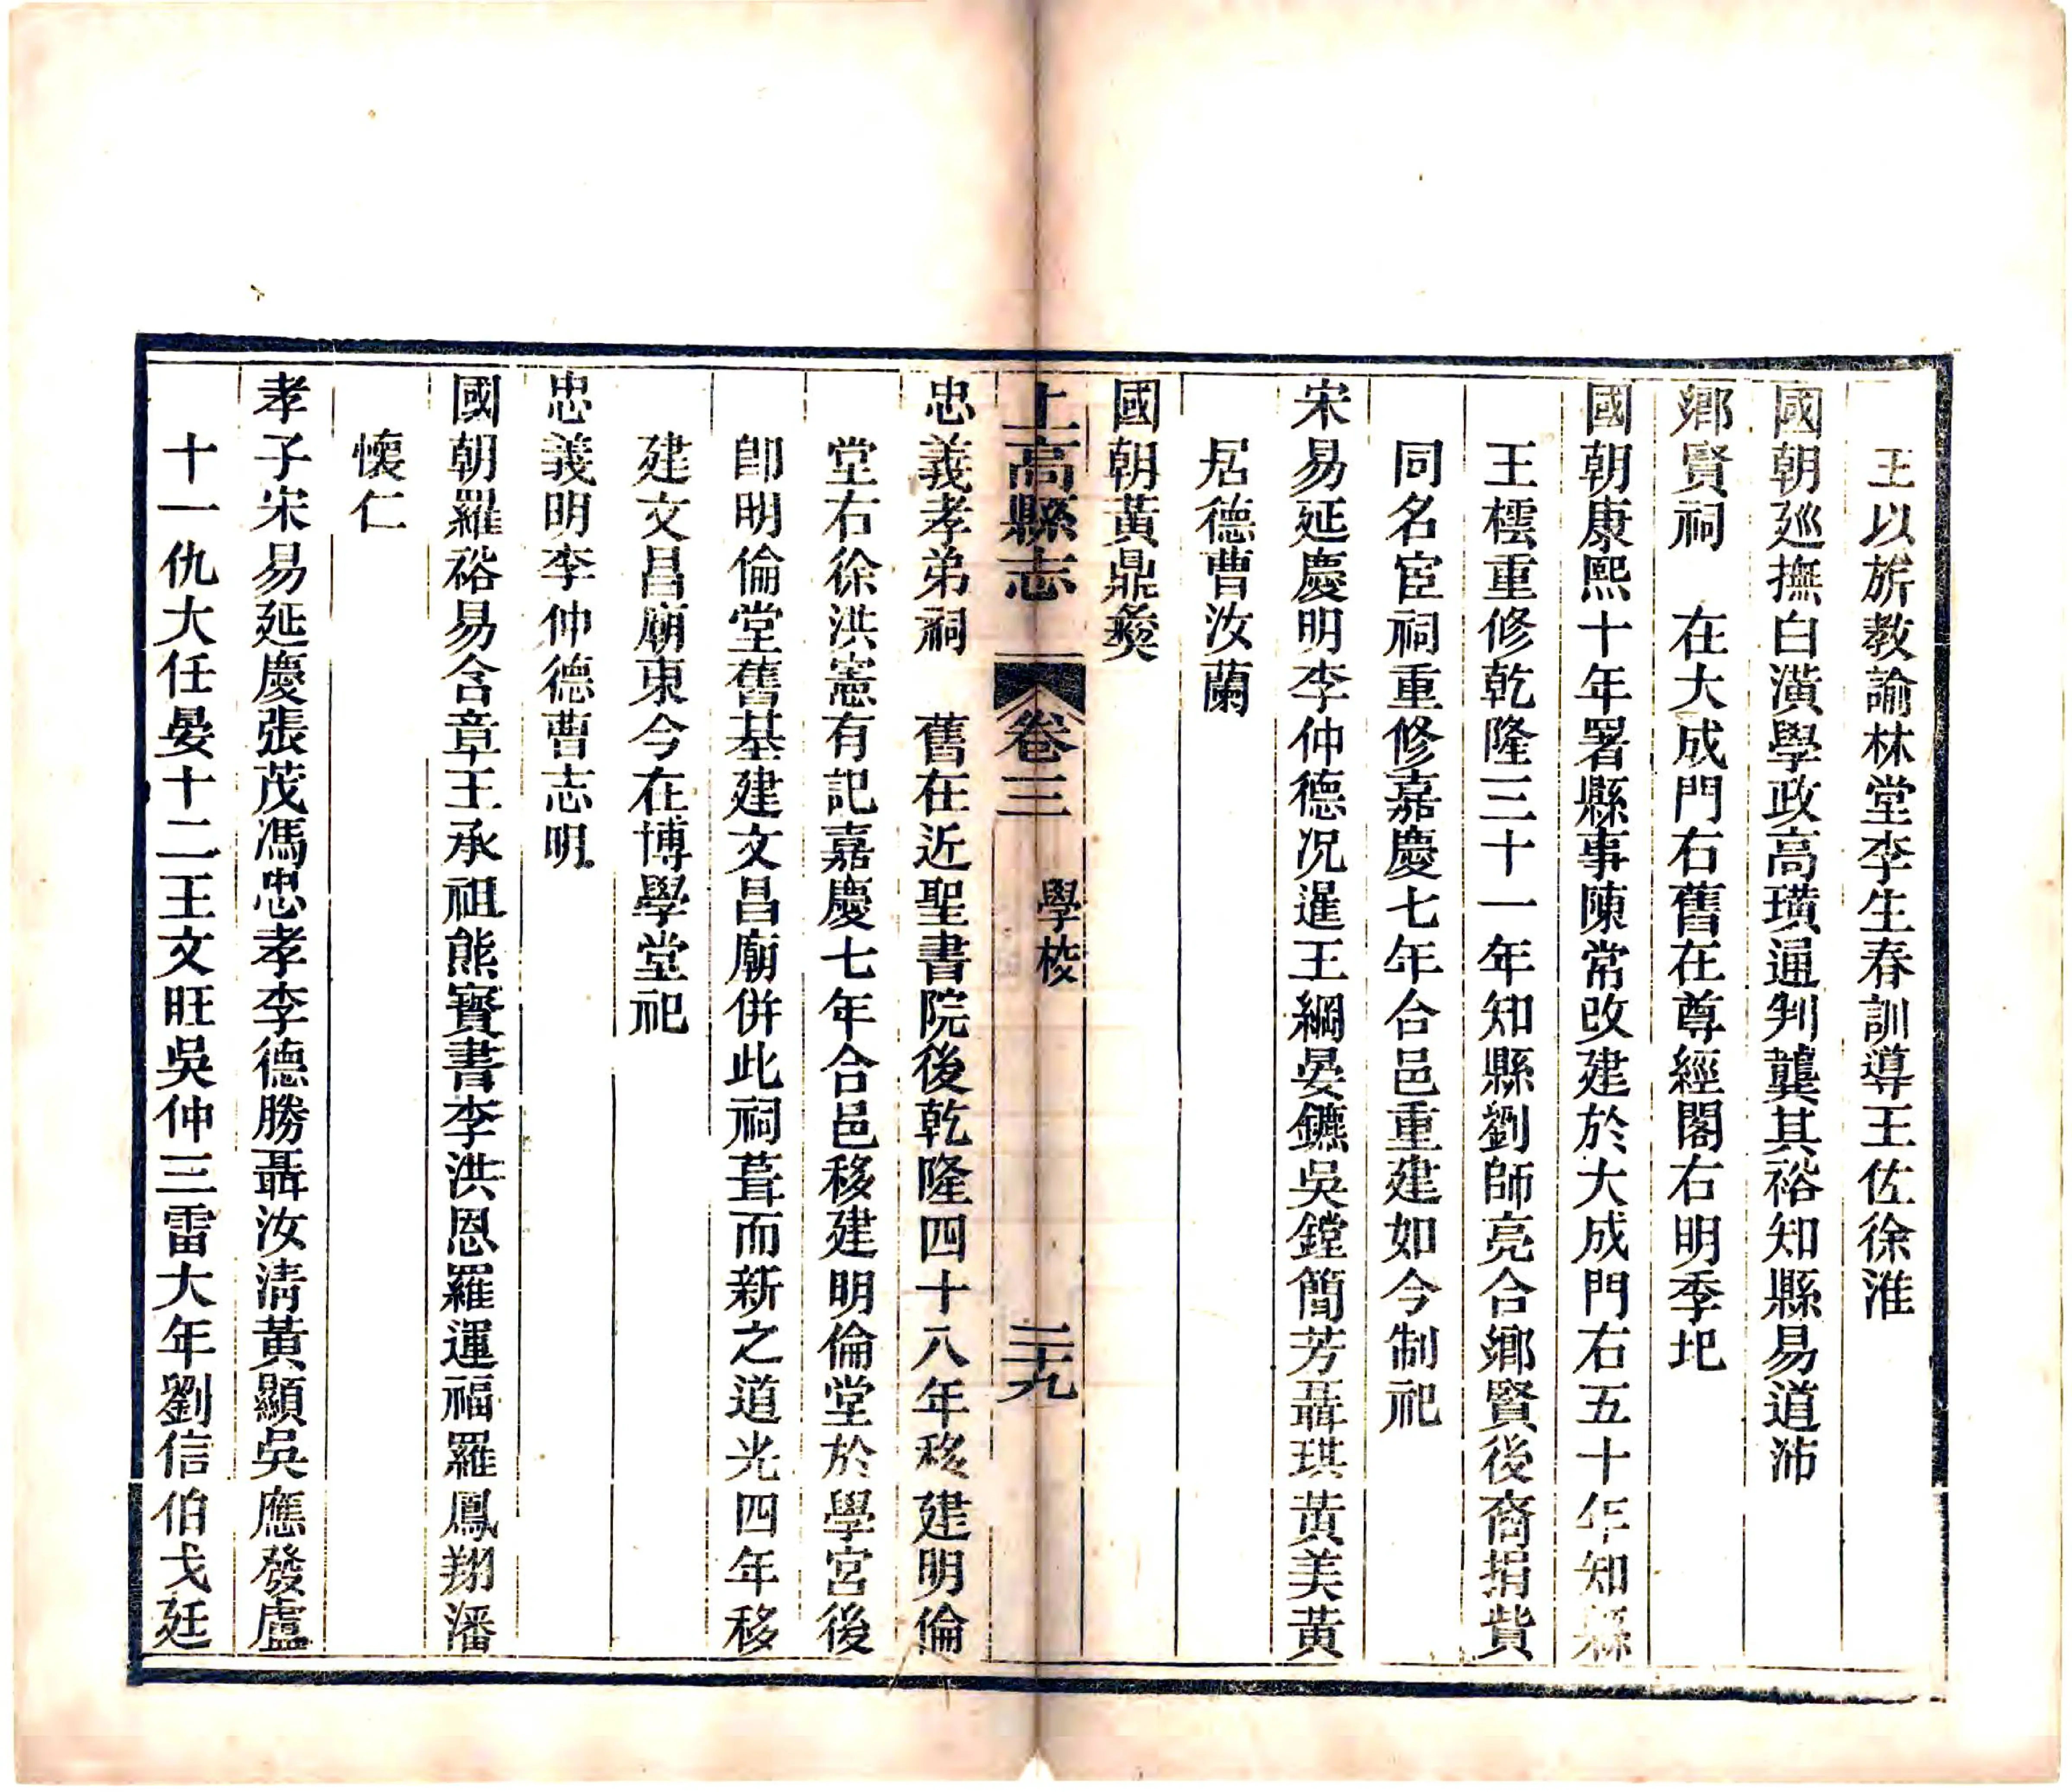 王以旂教諭林堂李生春訓導王佐徐淮
國朝廵撫白潢學政高璜通判龔其裕知縣易道沛
鄉賢祠　在大成門右舊在尊經閣右明季圯
國朝康熙十年署縣事陳常改建於大成門右五十年知縣
王橒重修乾隆三十一年知縣劉師亮合鄉賢後裔捐貲
同名宦祠重修嘉慶七年合邑重建如今制祀
宋易延慶明李仲德况暹王綱晏鐎吳鏜簡芳聶琪黃美黃
居德曹汝蘭
國朝黃鼎彝
上高縣志　卷三　學校　二十九
忠義孝弟祠　舊在近聖書院後乾隆四十八年移建明倫
堂右徐洪憲有記嘉慶七年合邑移建明倫堂於學宮後
卽明倫堂舊基建文昌廟併此祠葺而新之道光四年移
建文昌廟東今在博學堂祀
忠義明李仲德曹志明
國朝羅裕易含章王承祖熊寳書李洪恩羅運福羅鳳翔潘
懷仁
孝子宋易延慶張茂馮忠孝李德勝聶汝淸黃顯吳應發盧
十一仇大任晏十二王文旺吳仲三雷大年劉信伯戈廷